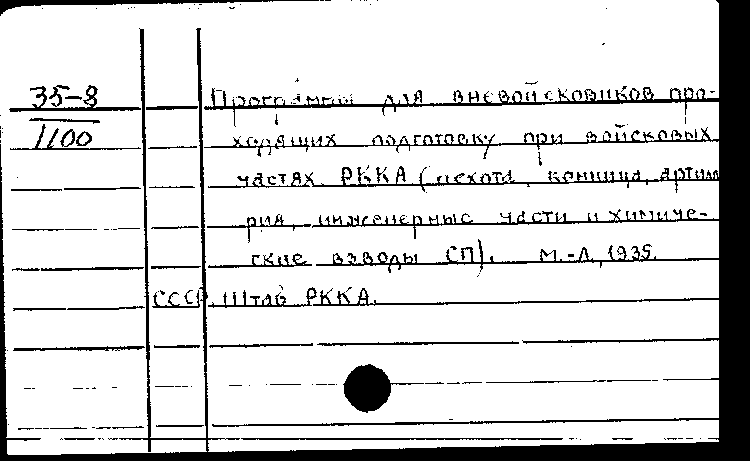 35-8
1100
Программы для вневойсковиков про-
ходящих подготовку при войсковых
частях РККА (пехота, конница, артилле
рия, инженерные части и химиче-
ские взводы СП). М.-Л., 1935.
СССР. Штаб РККА.